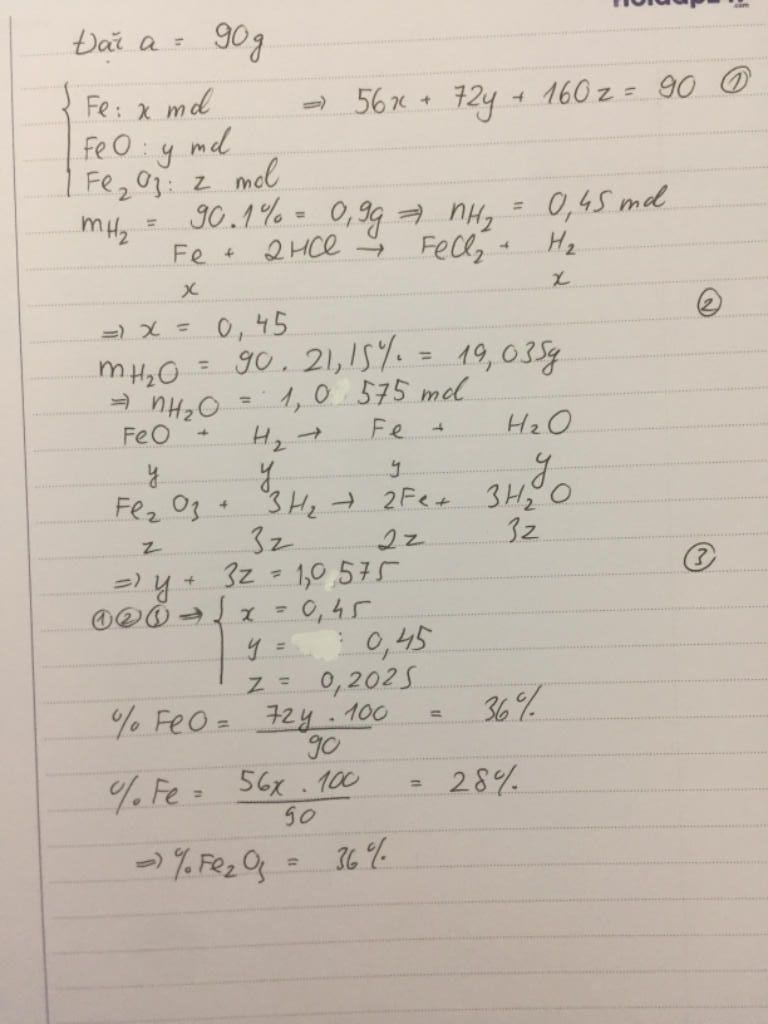 Đặt a = 90g
Fe: x mol => 56x + 72y + 160z = 90 ①
FeO: y mol
Fe2O3: z mol
mH2 = 90.1% = 0,9g => nH2 = 0,45 mol
Fe + 2HCl → FeCl2 + H2
x x
=> x = 0,45 ②
mH2O = 90.21,15% = 19,035g
=> nH2O = 1,0 575 mol
FeO + H2 → Fe + H2O
y y y y
Fe2O3 + 3H2 → 2Fe + 3H2O
z 3z 2z 3z
=> y + 3z = 1,0575 ③
①②③ => { x = 0,45
y = 0,45
z = 0,2025
% FeO = 72y . 100 / 90 = 36%
% Fe = 56x . 100 / 90 = 28%
=> % Fe2O3 = 36%